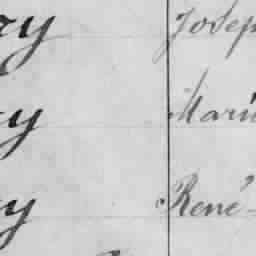 ry Josep
y Mari
y René-